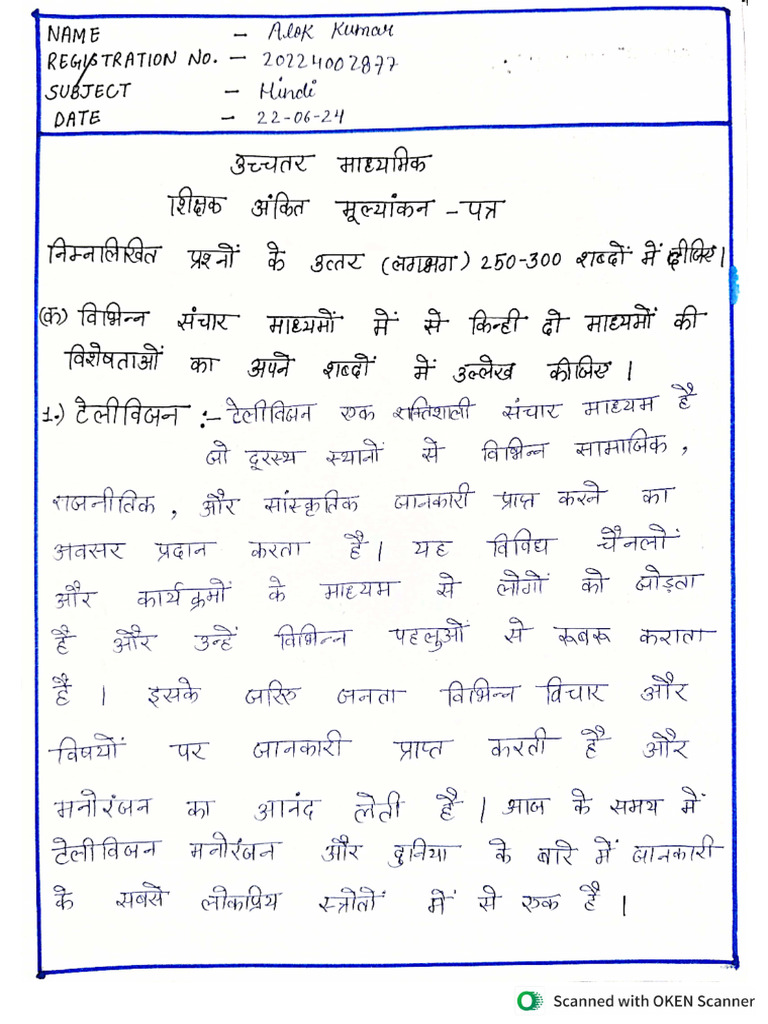 NAME - Alok Kumar
REGISTRATION NO. - 20224002877
SUBJECT - Hindi
DATE - 22-06-24
उच्चतर माध्यमिक
शिक्षक अंकित मूल्यांकन - पत्र
निम्नलिखित प्रश्नों के उत्तर (लगभग) 250-300 शब्दों में दीजिए।
(क) विभिन्न संचार माध्यमों में से किन्ही दो माध्यमों की
विशेषताओं का अपने शब्दों में उल्लेख कीजिए।
1.) टेलीविजन :- टेलीविजन एक शक्तिशाली संचार माध्यम है
जो दूरस्थ स्थानों से विभिन्न सामाजिक,
राजनीतिक, और सांस्कृतिक जानकारी प्राप्त करने का
अवसर प्रदान करता है। यह विविध चैनलों
और कार्यक्रमों के माध्यम से लोगों को जोड़ता
है और उन्हें विभिन्न पहलुओं से रूबरू कराता
है। इसके जरिए जनता विभिन्न विचार और
विषयों पर जानकारी प्राप्त करती है और
मनोरंजन का आनंद लेती है। आज के समय में
टेलीविजन मनोरंजन और दुनिया के बारे में जानकारी
के सबसे लोकप्रिय स्त्रोतों में से एक है।
Scanned with OKEN Scanner